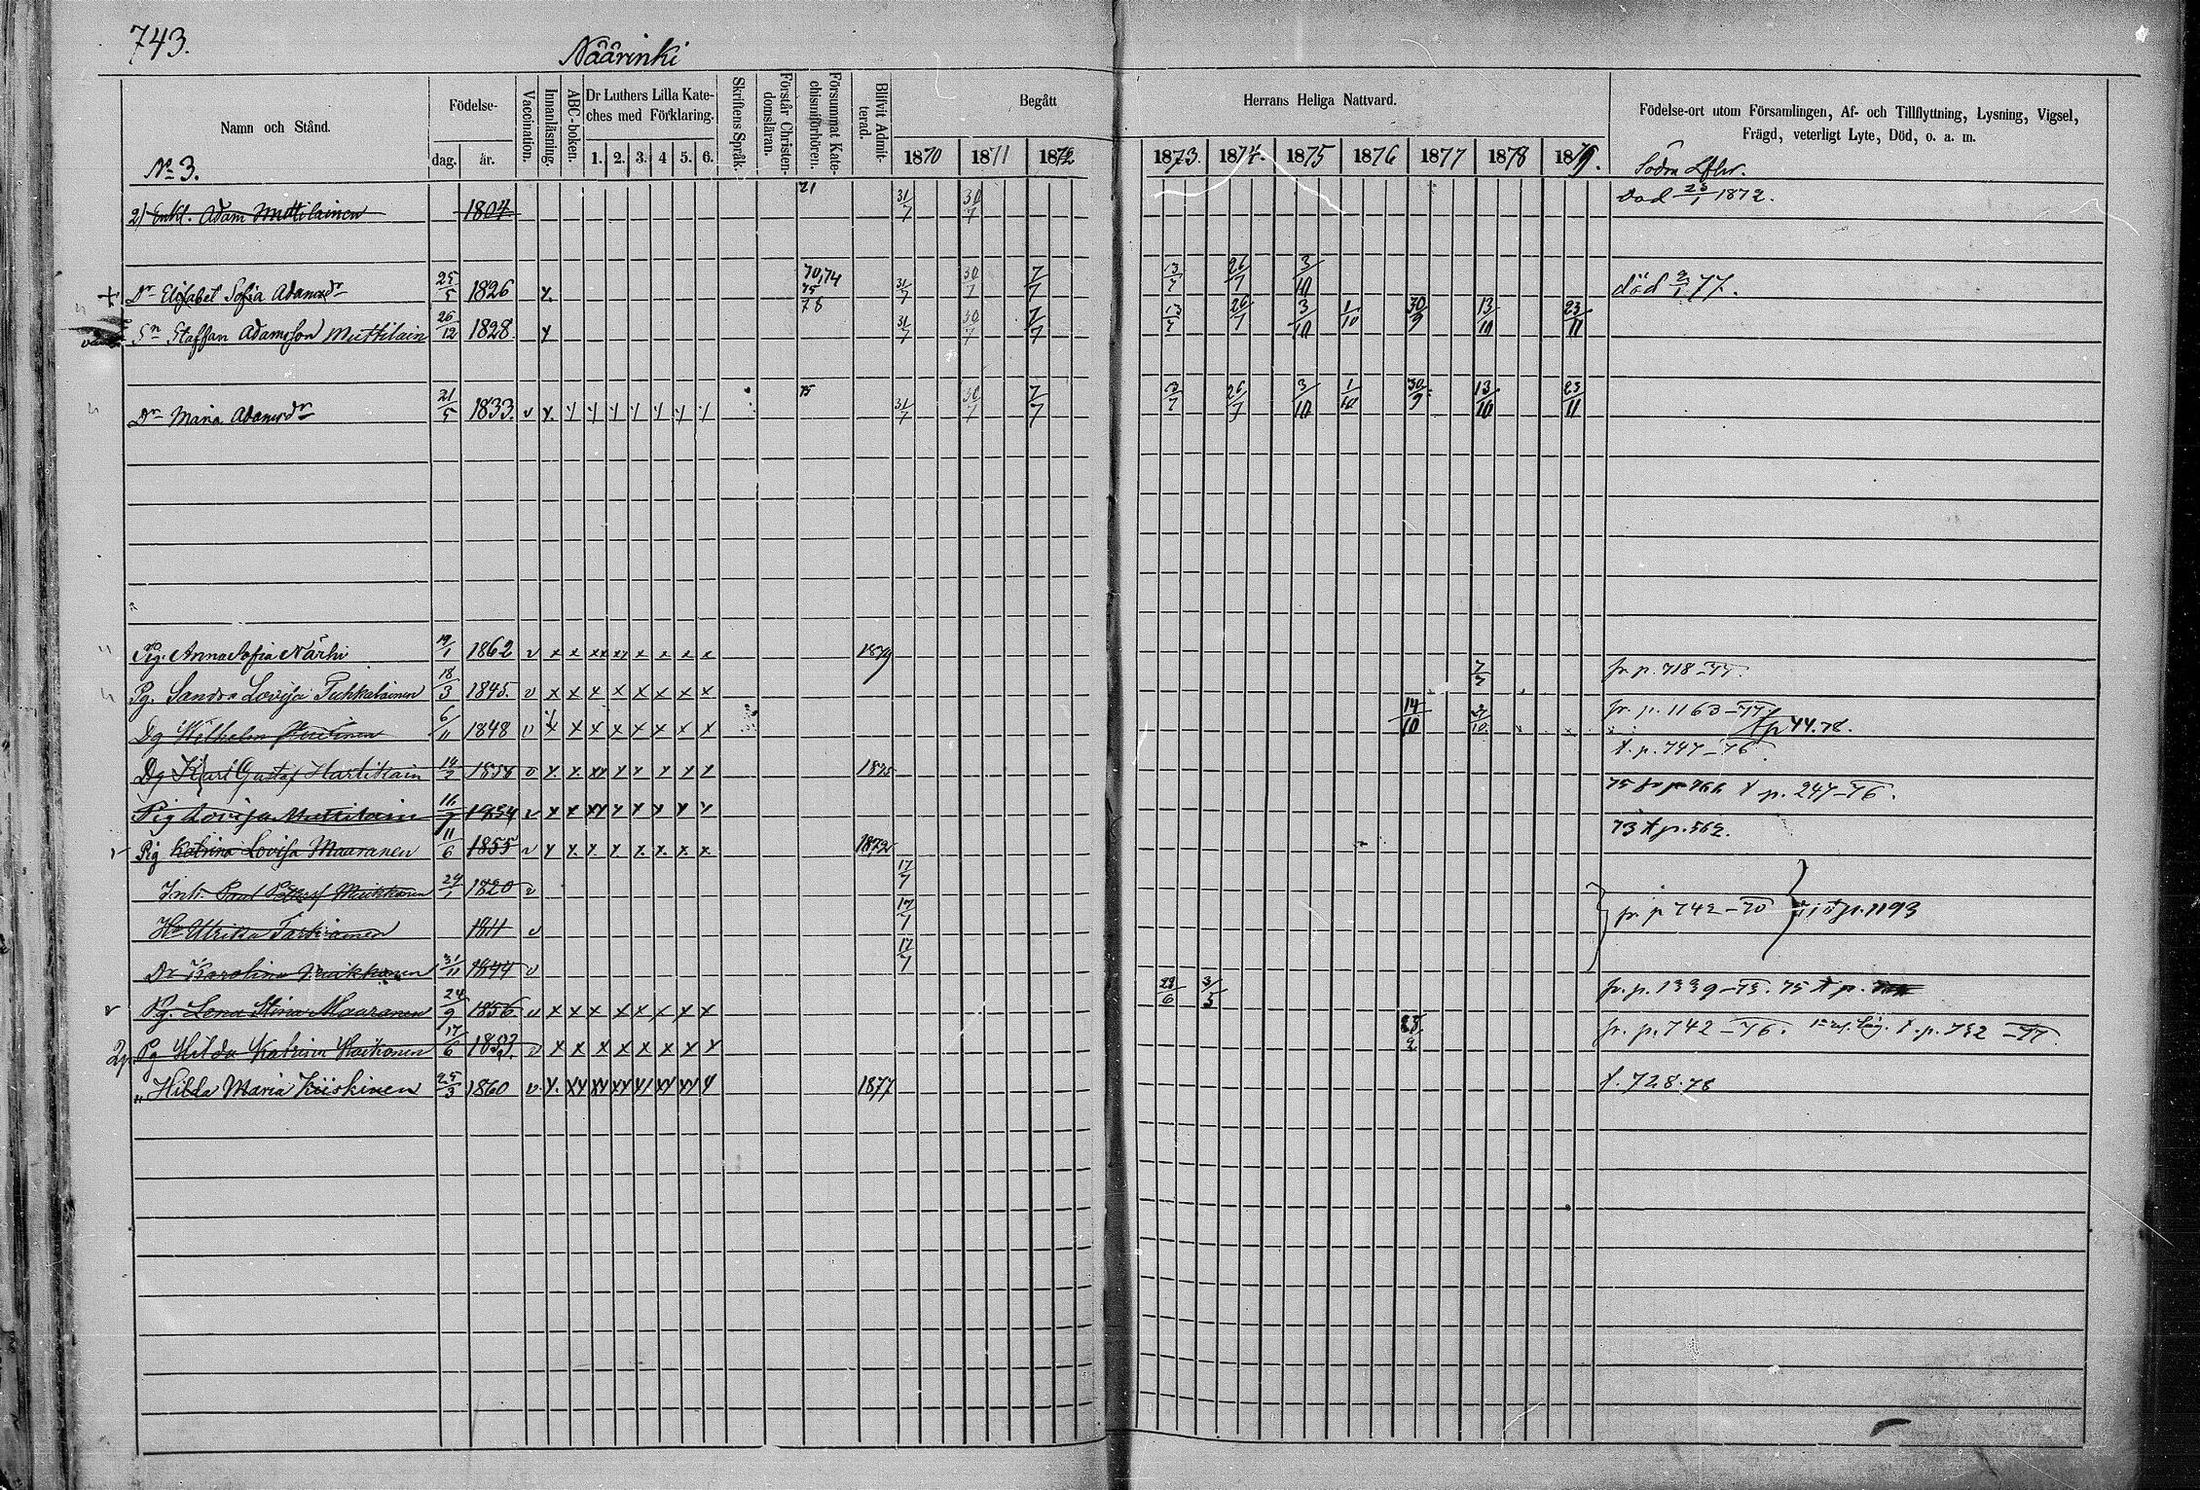 743.
Näärinki
Namn och Stånd.
Födelse-
dag. år.
Vaccination.
Innanläsning.
ABC-boken.
Dr Luthers Lilla Kate-
ches med Förklaring.
1. 2. 3. 4 5. 6.
Skriftens Språk.
Förstår Christen-
domsläran.
Försummat Kate-
chismiförhören.
Blifvit Admit-
terad.
Begått Herrans Heliga Nattvard.
1870 1871 1872 1873. 1874. 1875 1876 1877 1878 1879.
Födelse-ort utom Församlingen, Af- och Tillflyttning, Lysning, Vigsel,
Frägd, veterligt Lyte, Död, o. a. m.
No 3. Södra
2) Enkl. Adam Muttilainen 1804 71 31/7 30/7 Död 1872.
Dr Elisabet Sofia Adamsdr 25/5 1826 y. 70, 74 75 31/7 30/7 7/7 13/7 26/7 3/10 död 77.
78
Sn Staffan Adamsson Muttilain 26/12 1828 y 31/7 30/7 7/7 13/7 26/7 3/10 1/10 30/9 13/10 23/11
Dr Maria Adamsdr 21/5 1833. v y. 75 31/7 30/7 7/7 13/7 26/7 3/10 1/10 30/9 13/10 23/11
Pig. Anna Sofia Närhi 19/1 1862 v x x xx xx x x x x 1879
Pg. Sandra Lovisa Puhkalainen 18/3 1845. v x x x x x x x x 7/7 fr p. 718-77.
Dg Wilhelm 6/11 1848 v x x x x x x x x 14/10 fr. p. 1163-77 p 44.78.
Dg Karl Gustaf Hartikain 1858 v x. x. xx x x x x x 1875 t. p. 747-76
Pig Lovisa Muttilain 16/7 1854 v x x xx x x x x x 75 fr p 766 t p. 247-76.
Pig Katrina Lovisa Maaranen 11/6 1855 v x x x. x x x. x x 1872 73 t p. 562.
Inh. Paul 1820 v 17/7
Hu Ulrika Tarkiainen 1811 v 17/7 fr. p 742-70 t p. 1193
Dr Karolina 31/11 1844 v 17/7
Pg. Lena Stina Maaranen 24/9 1856 v x x x x x x x x 23/6 3/5 fr. p. 1339-73. 75 t p.
Pg Hilda Katrina 17/6 1853. v x x x x x x x x fr. p. 742-76. t. p. 732-77.
" Hilda Maria Kiiskinen 25/3 1860 v y. xy xy xy xy xy xy y 1877 t. 728.78